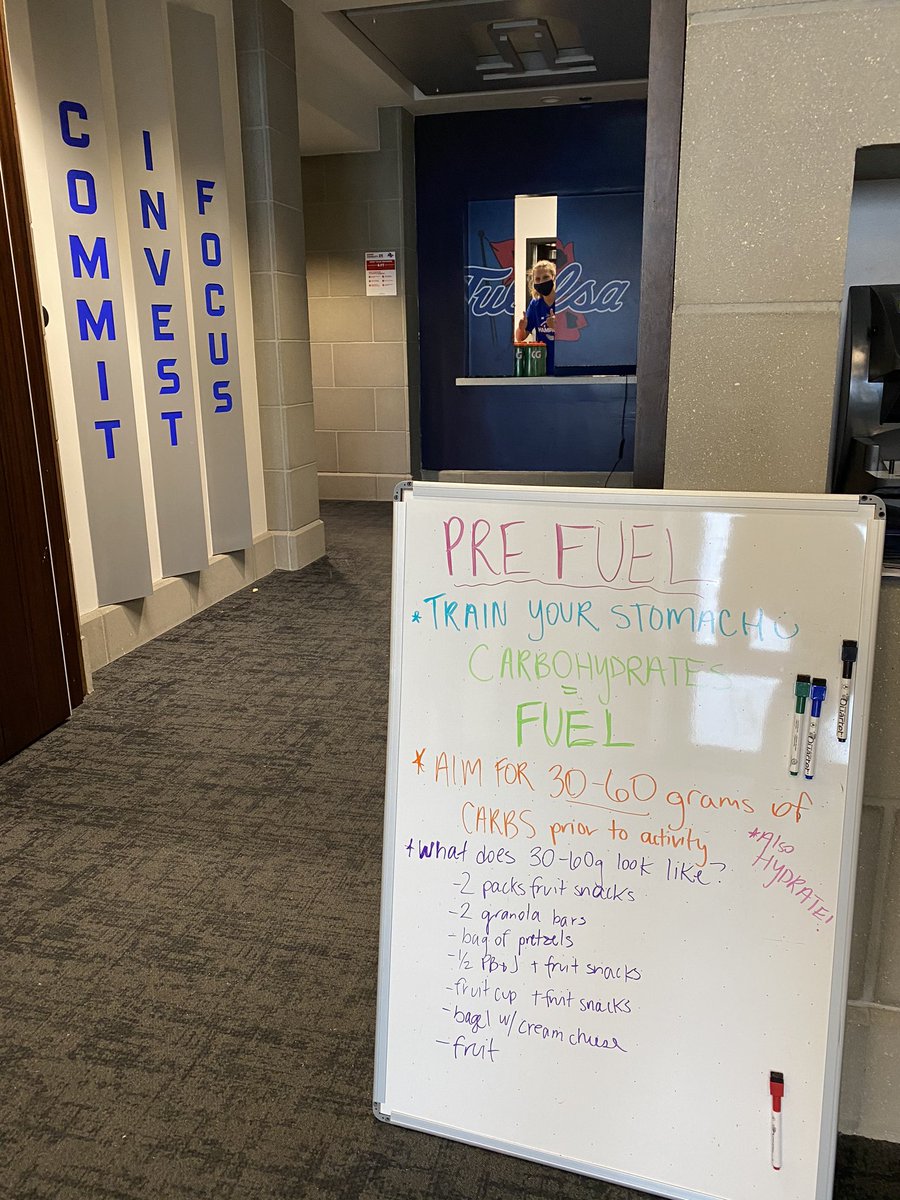 COMMIT
INVEST
FOCUS
Tulsa
PRE FUEL
*TRAIN YOUR STOMACH
CARBOHYDRATES
=
FUEL
*AIM FOR 30-60 grams of
CARBS prior to activity
*Also
HYDRATE!
*What does 30-60g look like?
-2 packs fruit snacks
-2 granola bars
-bag of pretzels
-1/2 PB+J + fruit snacks
-fruit cup + fruit snacks
-bagel w/ cream cheese
-fruit